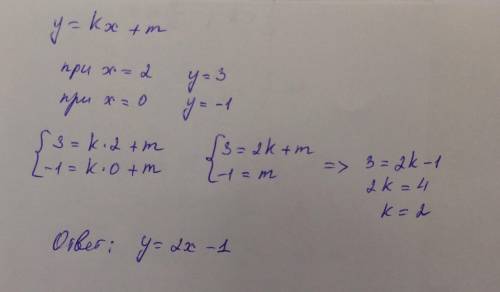 y = kx + m
при x = 2 y = 3
при x = 0 y = -1
{ 3 = k · 2 + m { 3 = 2k + m
-1 = k · 0 + m -1 = m => 3 = 2k - 1
2k = 4
k = 2
Ответ: y = 2x - 1